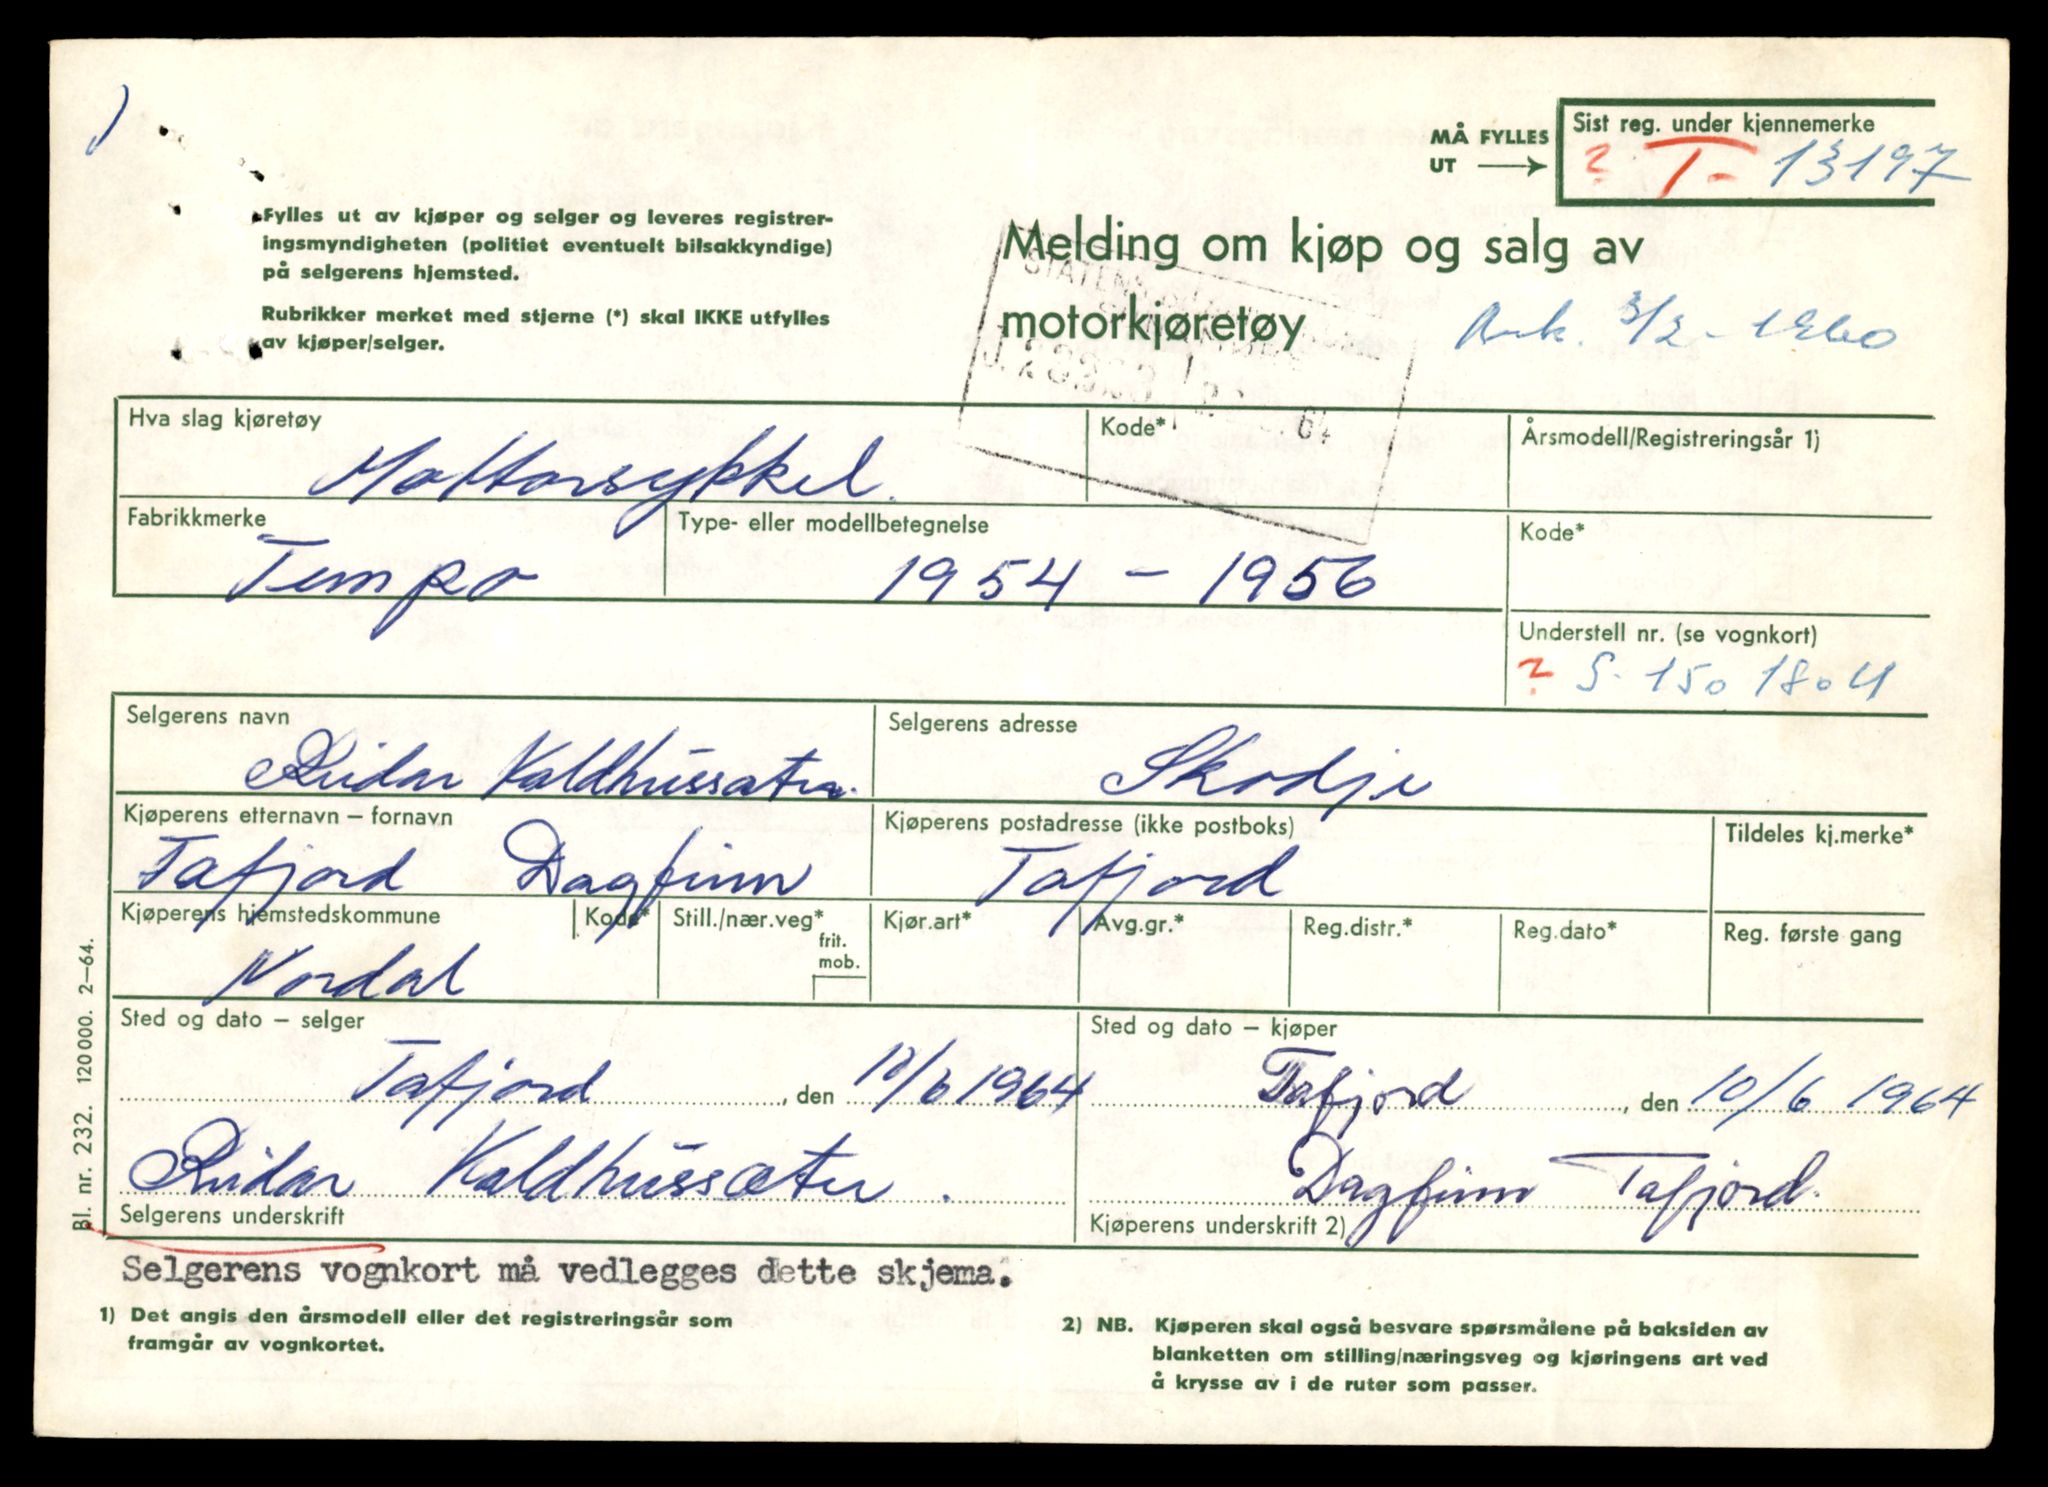 MÅ FYLLES
UT
Sist reg. under kjennemerke
? T- 13197
Fylles ut av kjøper og selger og leveres registrer-
ingsmyndigheten (politiet eventuelt bilsakkyndige)
på selgerens hjemsted.
Rubrikker merket med stjerne (*) skal IKKE utfylles
av kjøper/selger.
Melding om kjøp og salg av
motorkjøretøy
3/2-1960
STATENS
64
Hva slag kjøretøy
Mottorsykkel.
Kode*
Årsmodell/Registreringsår 1)
Fabrikkmerke
Tempo
Type- eller modellbetegnelse
1954 - 1956
Kode*
Understell nr. (se vognkort)
? S. 1501804
Selgerens navn
Reidar Kaldhussæter.
Selgerens adresse
Skodje
Kjøperens etternavn – fornavn
Tafjord Dagfinn
Kjøperens postadresse (ikke postboks)
Tafjord
Tildeles kj.merke*
Kjøperens hjemstedskommune
Nordal
Kode*
Still./nær.veg*
frit.
mob.
Kjør.art*
Avg.gr.*
Reg.distr.*
Reg.dato*
Reg. første gang
Sted og dato – selger
Tafjord, den 10/6 1964
Reidar Kaldhussæter.
Selgerens underskrift
Sted og dato – kjøper
Tafjord, den 10/6 1964
Dagfinn Tafjord.
Kjøperens underskrift 2)
Bl. nr. 232. 120000. 2–64.
Selgerens vognkort må vedlegges dette skjema.
1) Det angis den årsmodell eller det registreringsår som
framgår av vognkortet.
2) NB. Kjøperen skal også besvare spørsmålene på baksiden av
blanketten om stilling/næringsveg og kjøringens art ved
å krysse av i de ruter som passer.